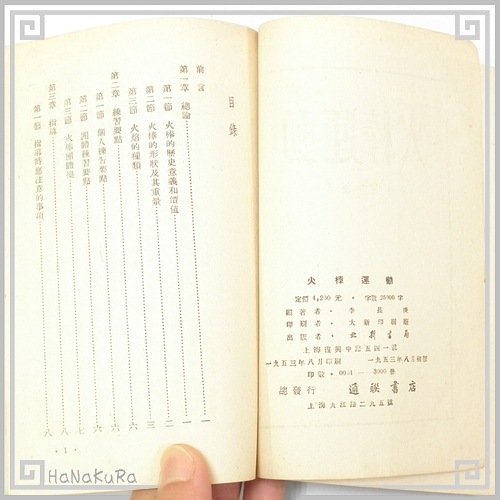 目錄
前言 一
第一章 總論 一
第一節 火棒的歷史意義和價值 一
第二節 火棒的形狀及其重量 二
第三節 火焰的種類 三
第二章 練習要點 六
第一節 個人練習要點 六
第二節 團體練習要點 七
第三節 火棒團體操 八
第三章 指導
第一節 指導時應注意的事項 八
·1·
火棒運動
定價 4,200 元 · 字數 25000 字
編著者 · 李長
印刷者 · 大新印刷廠
出版者 · 北新書局
上海復興中路五四一號
一九五三年八月印刷 一九五三年八月初版
印數 · 0001—3000 冊
總發行 通聯書店
上海九江路二九五號
HaNaKuRa